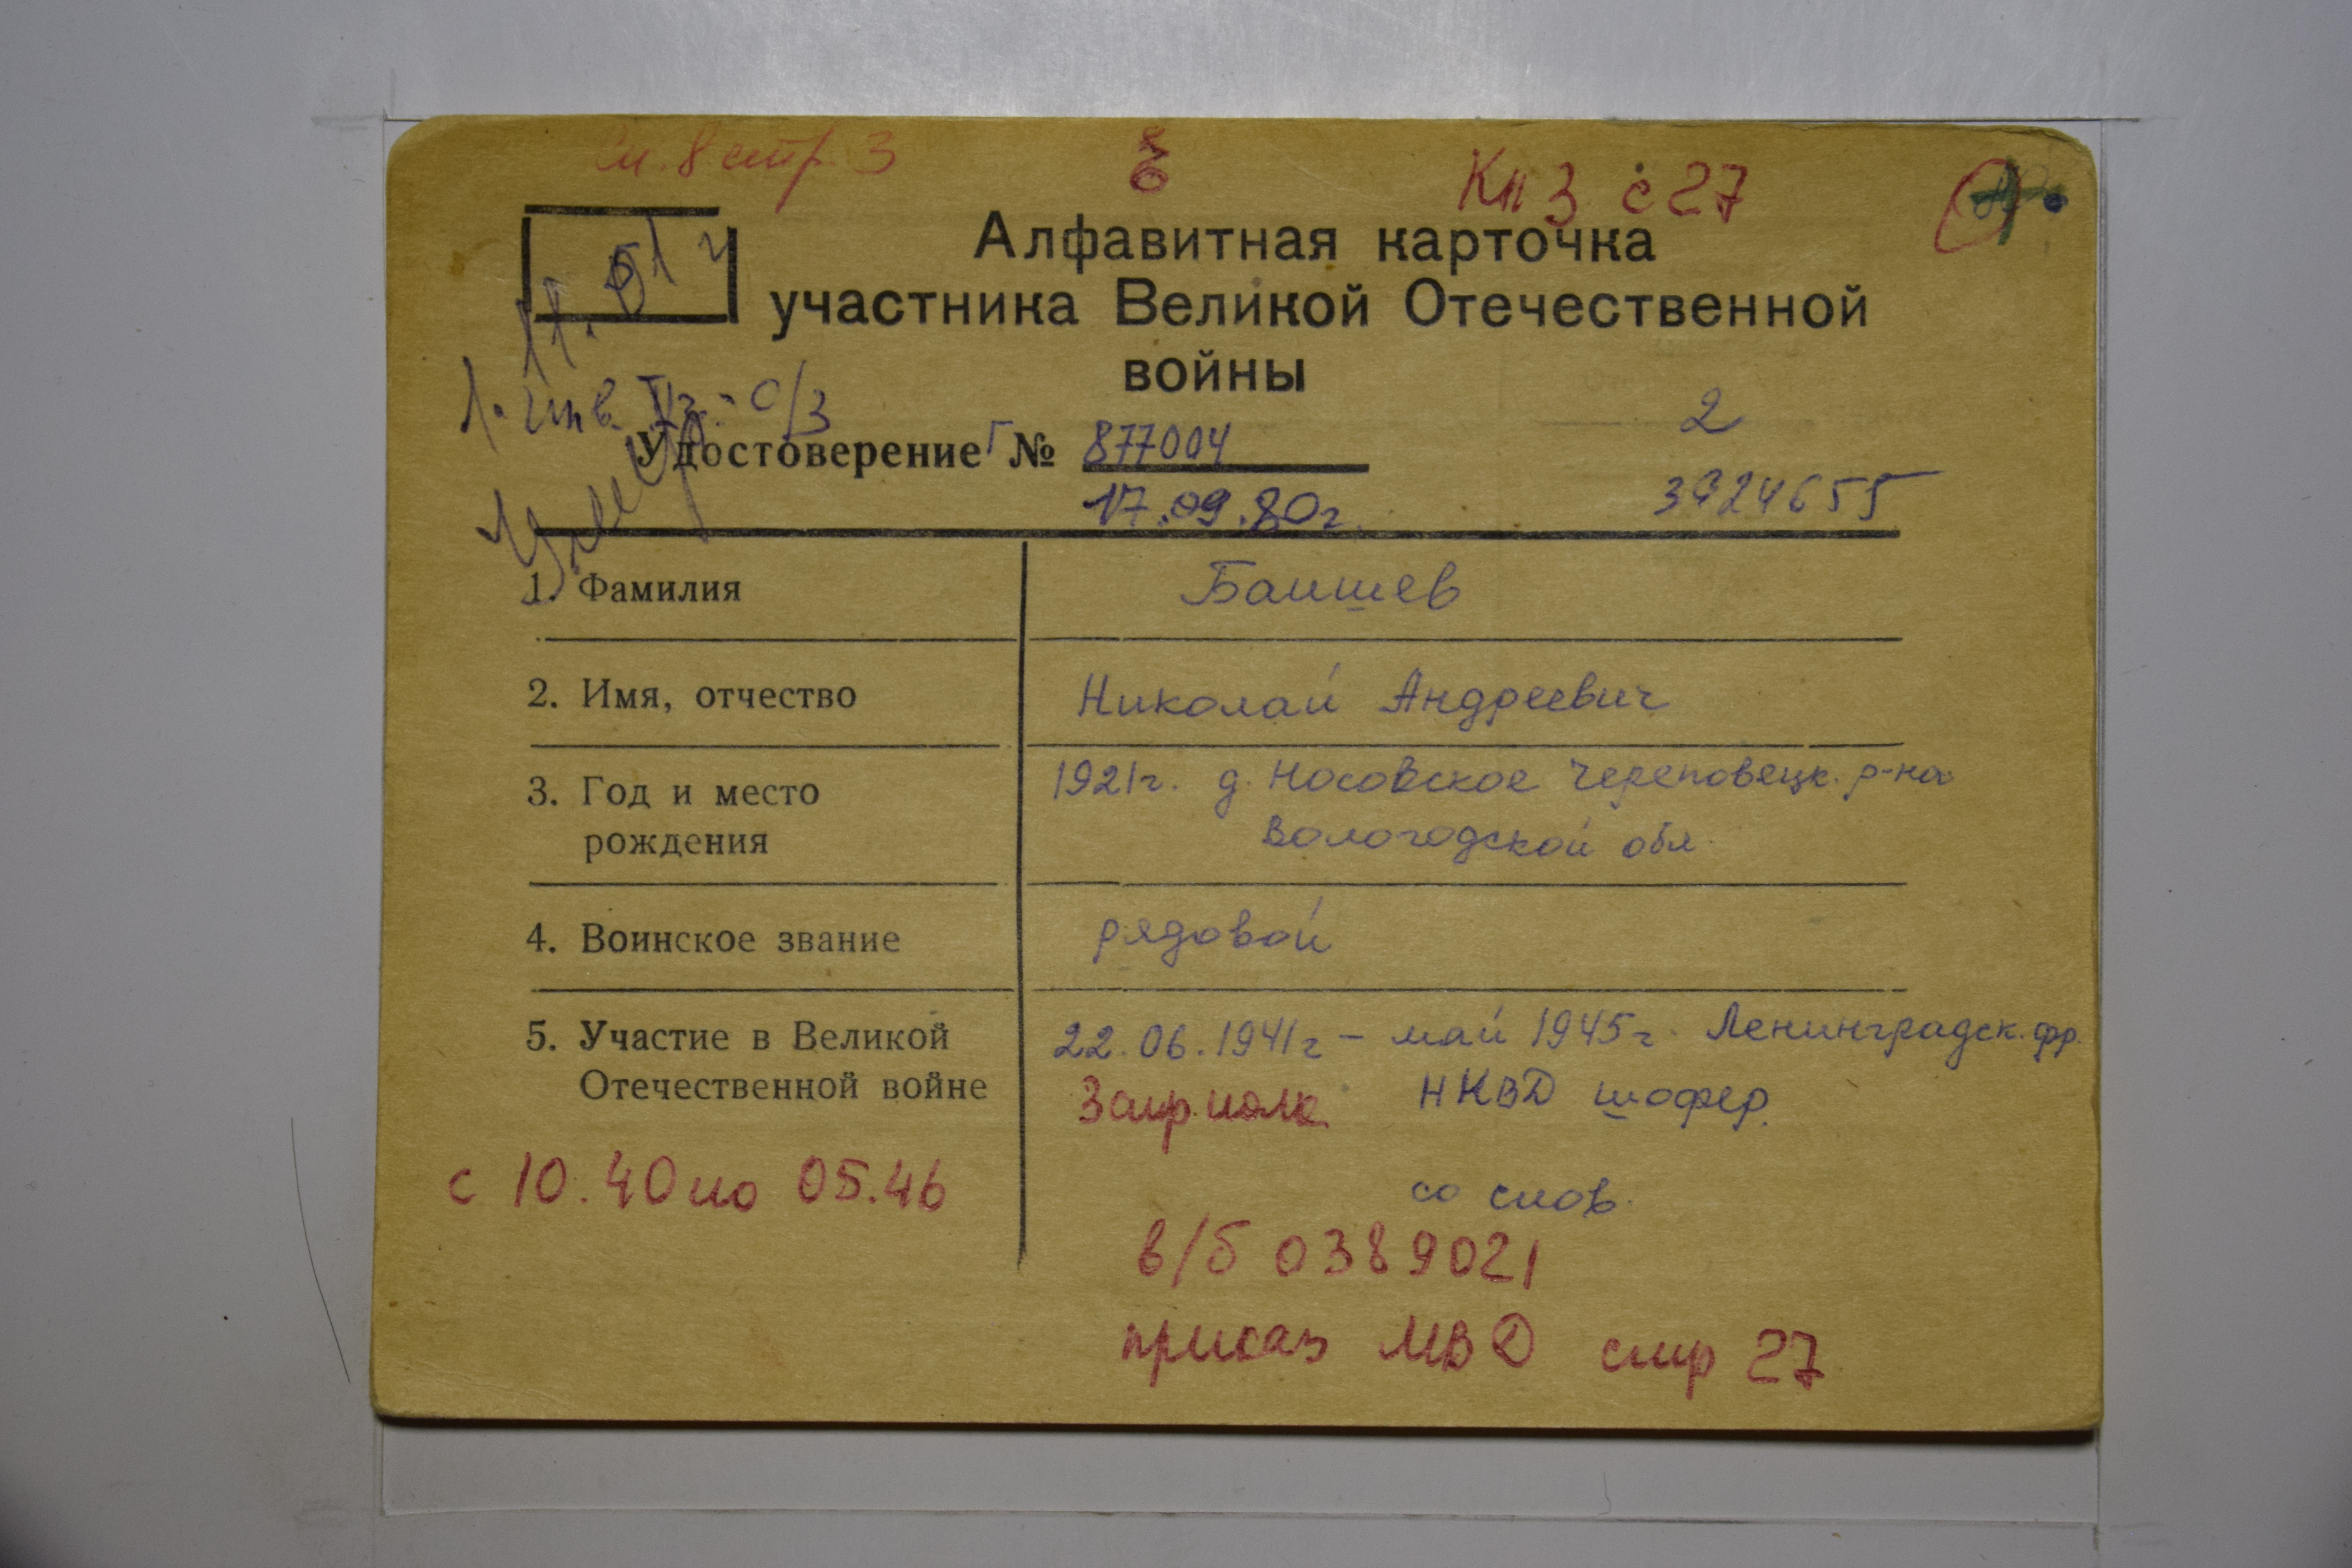 См. 8 стр. 3
Кн 3 с 27
Алфавитная карточка
участника Великой Отечественной
войны
11.01 г
1. инв. IIгр. - О/З
Умер
2
Удостоверение Г № 877004
17.09.80г.
3924655
1. Фамилия Баишев
2. Имя, отчество Николай Андреевич
3. Год и место 1921г. д. Носовское Череповецк. р-на
рождения Вологодской обл.
4. Воинское звание рядовой
5. Участие в Великой 22.06.1941г – май 1945г. Ленинградск. фр.
Отечественной войне НКВД шофер.
с 10.40 по 05.46
со слов.
в/б 0389021
приказ МВД стр 27